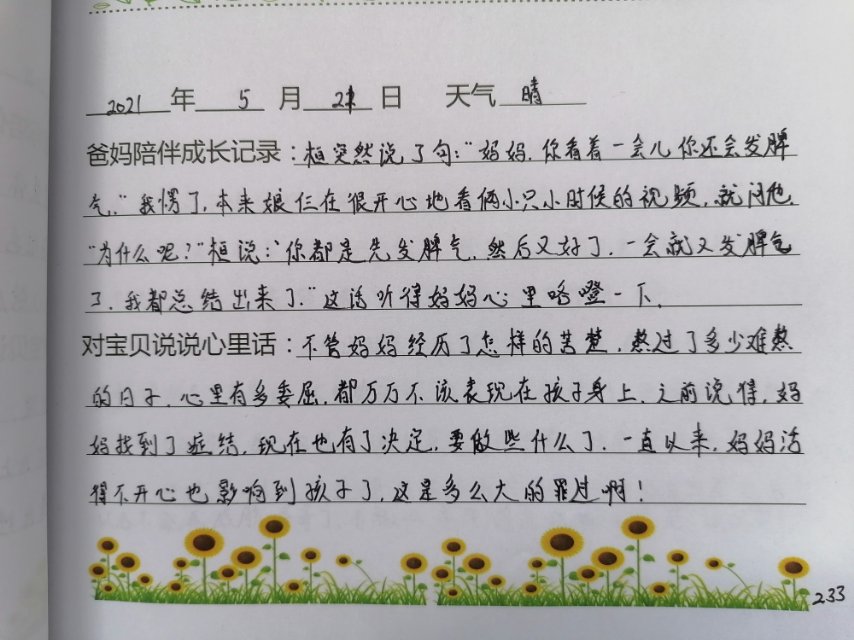 2021 年 5 月 21 日 天气 晴
爸妈陪伴成长记录：桓突然说了句：“妈妈，你看着一会儿你还会发脾
气。”我愣了，本来娘仨在很开心地看俩小只小时候的视频，就问他，
“为什么呢？”桓说：“你都是先发脾气，然后又好了，一会就又发脾气
了，我都总结出来了。”这话听得妈妈心里咯噔一下。
对宝贝说说心里话：不管妈妈经历了怎样的苦楚，熬过了多少难熬
的日子，心里有多委屈，都万万不该表现在孩子身上，之前说猜，妈
妈找到了症结，现在也有了决定，要做些什么了，一直以来，妈妈活
得不开心也影响到孩子了，这是多么大的罪过啊！
233